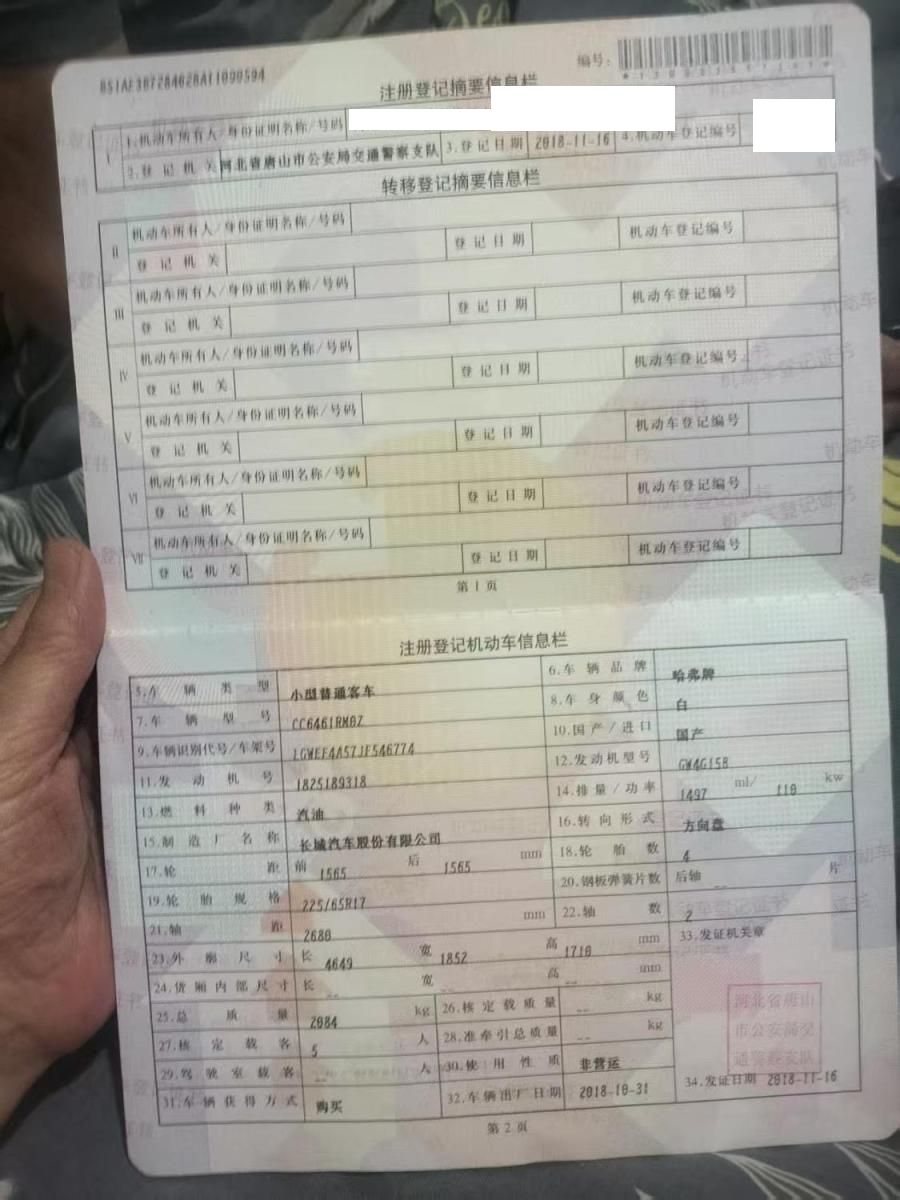 注册登记摘要信息栏
编号:
I
1.机动车所有人/身份证明名称/号码
2.登记机关 河北省唐山市公安局交通警察支队 3.登记日期 2018-11-16 4.机动车登记编号
转移登记摘要信息栏
II
机动车所有人/身份证明名称/号码
登记机关 登记日期 机动车登记编号
III
机动车所有人/身份证明名称/号码
登记机关 登记日期 机动车登记编号
IV
机动车所有人/身份证明名称/号码
登记机关 登记日期 机动车登记编号
V
机动车所有人/身份证明名称/号码
登记机关 登记日期 机动车登记编号
VI
机动车所有人/身份证明名称/号码
登记机关 登记日期 机动车登记编号
VII
机动车所有人/身份证明名称/号码
登记机关 登记日期 机动车登记编号
第1页
注册登记机动车信息栏
5.车辆类型 小型普通客车 6.车辆品牌 哈弗牌
7.车辆型号 CC6461RM0Z 8.车身颜色 白
9.车辆识别代号/车架号 LGWEF4A57JF546774 10.国产/进口 国产
11.发动机号 1825189318 12.发动机型号 GW4G15B
13.燃料种类 汽油 14.排量/功率 1497 ml/ 110 kw
15.制造厂名称 长城汽车股份有限公司 16.转向形式 方向盘
17.轮距 前 1565 后 1565 mm 18.轮胎数 4
19.轮胎规格 225/65R17 20.钢板弹簧片数 后轴 -- 片
21.轴距 2680 mm 22.轴数 2
23.外廓尺寸 长 4649 宽 1852 高 1710 mm 33.发证机关章
24.货厢内部尺寸 长 -- 宽 -- 高 -- mm
25.总质量 2084 kg 26.核定载质量 -- kg
27.核定载客 5 人 28.准牵引总质量 -- kg
29.驾驶室载客 -- 人 30.使用性质 非营运
31.车辆获得方式 购买 32.车辆出厂日期 2018-10-31
河北省唐山
市公安局交
通警察支队
34.发证日期 2018-11-16
第2页